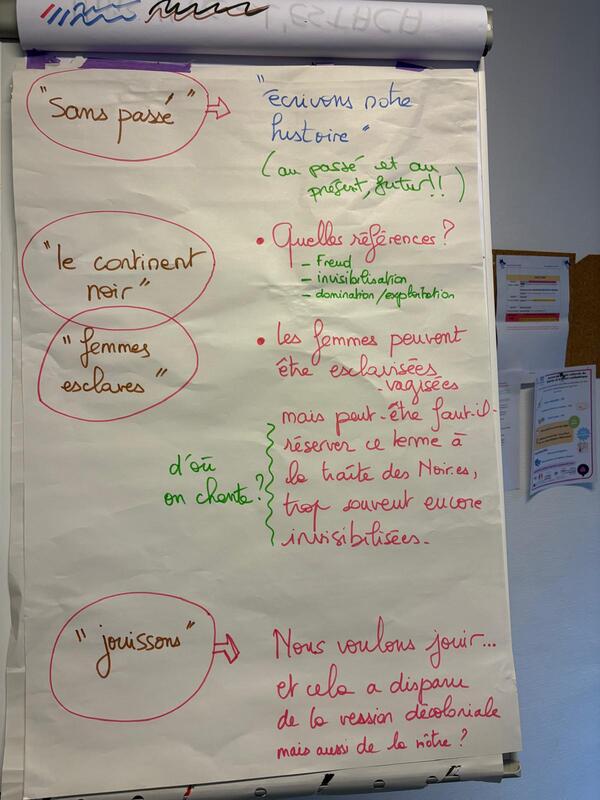 "Sans passé"
"écrivons notre
histoire"
(au passé et au
présent, futur!!)
"le continent
noir"
• Quelles références?
- Freud
- invisibilisation
- domination/exploitation
"femmes
esclaves"
• Les femmes peuvent
être esclavisées
-vagisées
mais peut-être faut-il-
réserver ce terme à
la traite des Noir.es,
trop souvent encore
invisibilisées.
d'où
on chante?
"jouissons"
Nous voulons jouir...
et cela a disparu
de la version décoloniale
mais aussi de la nôtre?